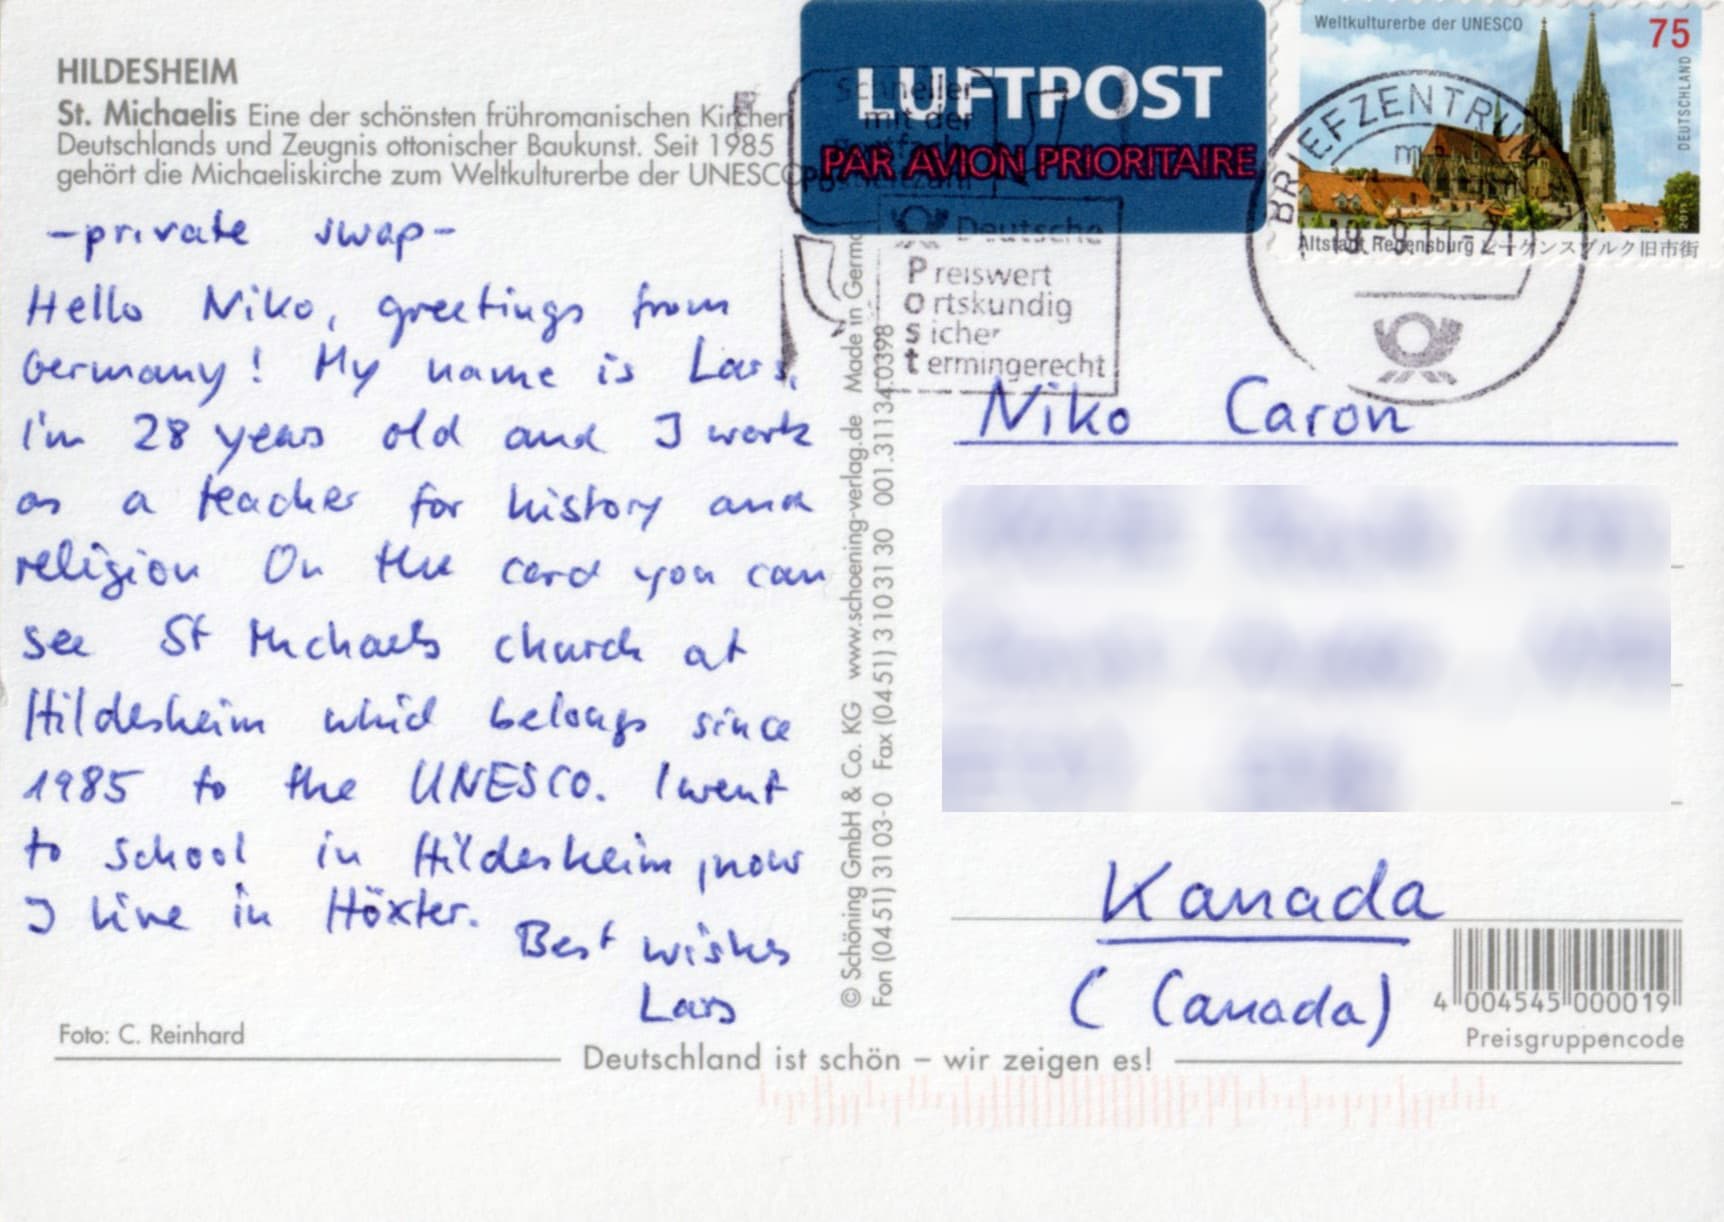 HILDESHEIM
St. Michaelis Eine der schönsten frühromanischen Kirchen
Deutschlands und Zeugnis ottonischer Baukunst. Seit 1985
gehört die Michaeliskirche zum Weltkulturerbe der UNESCO
-private swap-
Hello Niko, greetings from
Germany! My name is Lars,
I'm 28 years old and I work
as a teacher for history and
religion On the card you can
see St Michaels church at
Hildesheim which belongs since
1985 to the UNESCO. I went
to school in Hildesheim, now
I live in Höxter.
Best wishes
Lars
Foto: C. Reinhard
Deutschland ist schön – wir zeigen es!
© Schöning GmbH & Co. KG www.schoening-verlag.de Made in Germ
Fon (04 51) 31 03-0 Fax (04 51) 3 10 31 30 001.31134.0398
LUFTPOST
PAR AVION PRIORITAIRE
Schneller
mit der
Deutsche
Preiswert
Ortskundig
Sicher
termingerecht
Weltkulturerbe der UNESCO
75
DEUTSCHLAND
2011
Altstadt Regensburg レーゲンスブルク旧市街
BRIEFZENTRUM
19.-9.11-21
Niko Caron
Kanada
(Canada)
4 004545 000019
Preisgruppencode